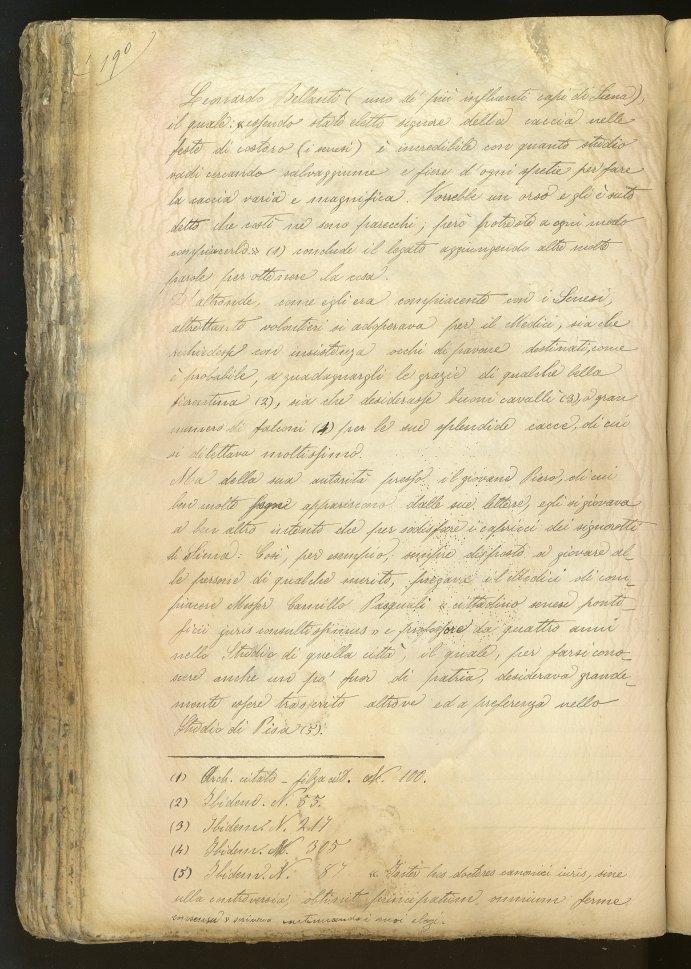 190
Leonardo Bellanti (uno de' più influenti capi di Siena),
il quale: «essendo stato eletto signore della caccia nelle
feste di costoro (i senesi) è incredibile con quanto studio
vadi cercando salvaggiume e fiere d'ogni spetie per fare
la caccia varia e magnifica. Vorrebbe un orso e gli è suto
detto che costì ne sono parecchi; però potreste a ogni modo
compiacerlo» (1) conclude il legato aggiungendo altre molte
parole per ottenere la cosa.
D'altronde, come egli era compiacente con i Senesi,
altrettanto volentieri si adoperava per il Medici, sia che
richiedesse con insistenza occhi di pavone destinati, come
è probabile, a guadagnargli le grazie di qualche bella
fiorentina (2), sia che desiderasse buoni cavalli (3) o gran
numero di falconi (4) per le sue splendide cacce, di cui
si dilettava moltissimo.
Ma della sua autorità presso il giovane Piero, di cui
ben molte appariscono dalle sue lettere, egli si giovava
a ben altro intento che per sodisfare i capricci dei signorotti
di Siena: Così, per esempio, sempre disposto a giovare al-
le persone di qualche merito, pregava il Medici di com-
piacere Messer Camillo Pasquali «cittadino senese ponti-
ficii juris consultissimus» e professore da quattro anni
nello Studio di quella città, il quale, per farsi cono-
scere anche un po' fuor di patria, desiderava grande-
mente essere trasferito altrove ed a preferenza nello
Studio di Pisa (5).
(1) Arch. citato – filza cit. N. 100.
(2) Ibidem. N. 55.
(3) Ibidem. N. 217
(4) Ibidem. N. 305
(5) Ibidem. N. 87 « Inter hos doctores canonici iuris, sine
ulla controversia obtinet principatum omnium ferme
consensu » scriveva continuando i suoi elogi.